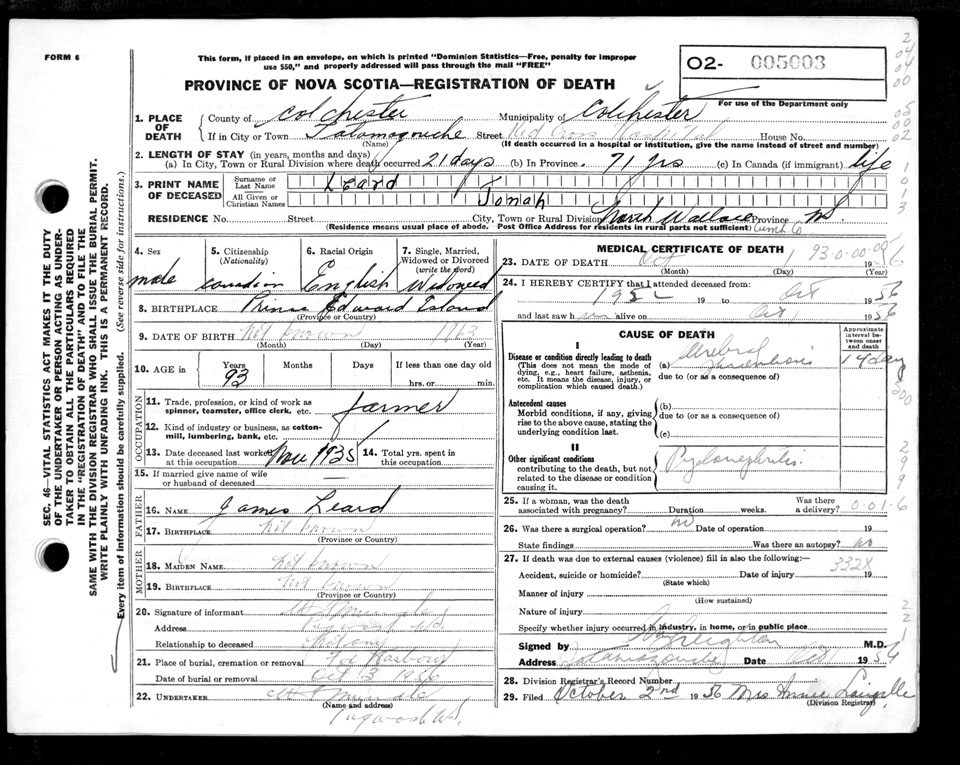 FORM 6
This form, if placed in an envelope, on which is printed "Dominion Statistics—Free, penalty for improper
use $50," and properly addressed will pass through the mail "FREE"
PROVINCE OF NOVA SCOTIA—REGISTRATION OF DEATH
02- 005003
For use of the Department only
1. PLACE OF DEATH
County of Colchester Municipality of Colchester
If in City or Town Tatamagouche Street Red Cross Hospital House No.
(Name) (If death occurred in a hospital or institution, give the name instead of street and number)
2. LENGTH OF STAY (in years, months and days)
(a) In City, Town or Rural Division where death occurred 21 days (b) In Province 71 yrs (c) In Canada (if immigrant) life
3. PRINT NAME OF DECEASED
Surname or Last Name Leard
All Given or Christian Names Jonah
RESIDENCE No. Street City, Town or Rural Division North Wallace Province NS
(Residence means usual place of abode. Post Office Address for residents in rural parts not sufficient) Cumb. Co
4. Sex
male
5. Citizenship
(Nationality)
canadian
6. Racial Origin
English
7. Single, Married, Widowed or Divorced
(write the word)
Widowed
8. BIRTHPLACE Prince Edward Island
(Province or Country)
9. DATE OF BIRTH Not known 1863
(Month) (Day) (Year)
10. AGE in
Years Months Days If less than one day old
93 hrs. or min.
OCCUPATION
11. Trade, profession, or kind of work as
spinner, teamster, office clerk, etc. farmer
12. Kind of industry or business, as cotton-
mill, lumbering, bank, etc.
13. Date deceased last worked at this occupation Nov 1935
14. Total yrs. spent in this occupation
15. If married give name of wife
or husband of deceased —
FATHER
16. NAME James Leard
17. BIRTHPLACE Not known
(Province or Country)
MOTHER
18. MAIDEN NAME Not known
19. BIRTHPLACE Not known
(Province or Country)
20. Signature of informant
Address Pugwash NS
Relationship to deceased Not any
21. Place of burial, cremation or removal Fox Harbour
Date of burial or removal Oct 3 1956
22. UNDERTAKER
(Name and address)
Pugwash NS.
MEDICAL CERTIFICATE OF DEATH
23. DATE OF DEATH Oct 1 1956
93-0-00-00
(Month) (Day) (Year)
24. I HEREBY CERTIFY that I attended deceased from:
19 to Oct 1956
and last saw him alive on Oct 1 1956
CAUSE OF DEATH
Approximate interval between onset and death
I
Disease or condition directly leading to death
(This does not mean the mode of dying, e.g., heart failure, asthenia, etc. It means the disease, injury, or complication which caused death.)
(a) Cerebral Thrombosis 14 days
due to (or as a consequence of)
Antecedent causes
Morbid conditions, if any, giving rise to the above cause, stating the underlying condition last.
(b)
due to (or as a consequence of)
(c)
II
Other significant conditions
contributing to the death, but not related to the disease or condition causing it.
Pyelonephritis.
25. If a woman, was the death associated with pregnancy? Duration weeks Was there a delivery?
0-01-6
26. Was there a surgical operation? no Date of operation 19
State findings Was there an autopsy? no
27. If death was due to external causes (violence) fill in also the following:—
332X
Accident, suicide or homicide? Date of injury 19
(State which)
Manner of injury
(How sustained)
Nature of injury
Specify whether injury occurred in industry, in home, or in public place
Signed by Creighton M.D.
Address Tatamagouche Date Oct 1 1956
28. Division Registrar's Record Number
29. Filed October 2nd 1956 Mrs Annie
(Division Registrar)
SEC. 46—VITAL STATISTICS ACT MAKES IT THE DUTY
OF THE UNDERTAKER OR PERSON ACTING AS UNDER-
TAKER TO OBTAIN ALL THE PARTICULARS REQUIRED
IN THE "REGISTRATION OF DEATH" AND TO FILE THE
SAME WITH THE DIVISION REGISTRAR WHO SHALL ISSUE THE BURIAL PERMIT.
WRITE PLAINLY WITH UNFADING INK. THIS IS A PERMANENT RECORD.
Every item of information should be carefully supplied. (See reverse side for instructions.)